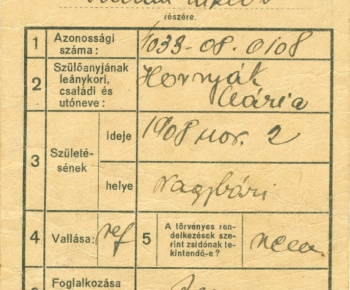 részére.
1 Azonossági száma: 1033-08.0108
2 Szülőanyjának leánykori, családi és utóneve: Hornyák Mária
3 Születésének ideje 1908 nov. 2
helye Nagybári
4 Vallása: ref 5 A törvényes rendelkezések szerint zsidónak tekintendő-e? nem
Foglalkozása